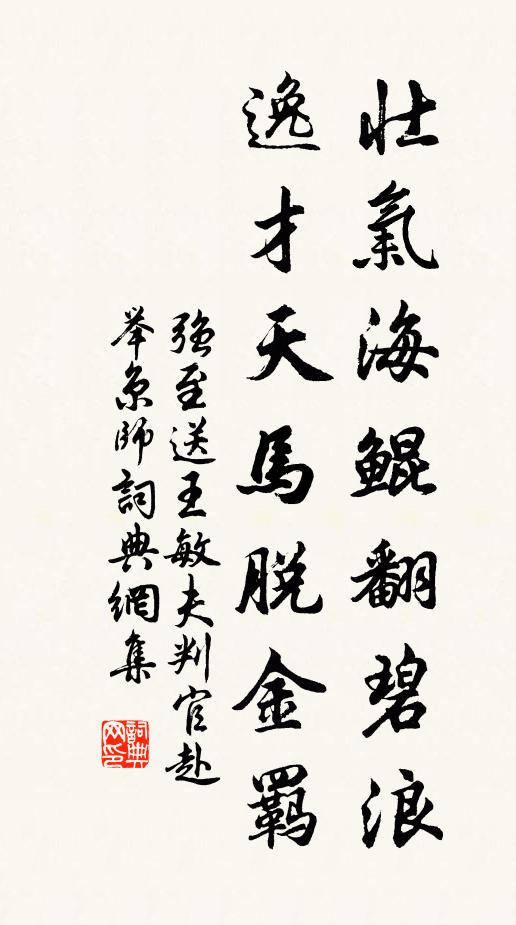 壯氣海鯤翻碧浪
逸才天馬脱金羈
強至送王敏夫判官赴
举京師詞典網集
詞典
网印